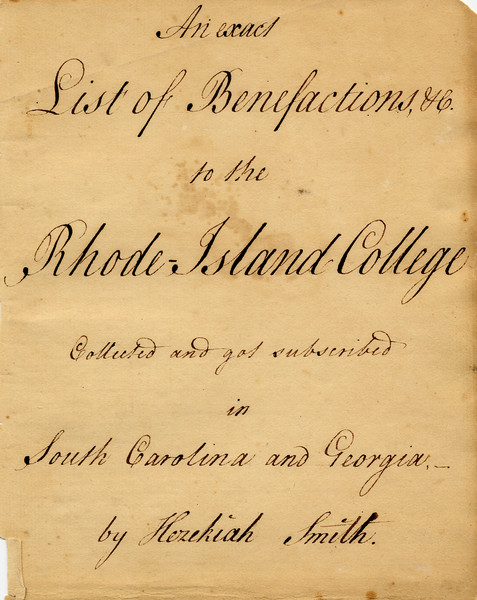 An exact
List of Benefactions, &c.
to the
Rhode=Island College
Collected and got subscribed
in
South Carolina and Georgia.—
by Hezekiah Smith.